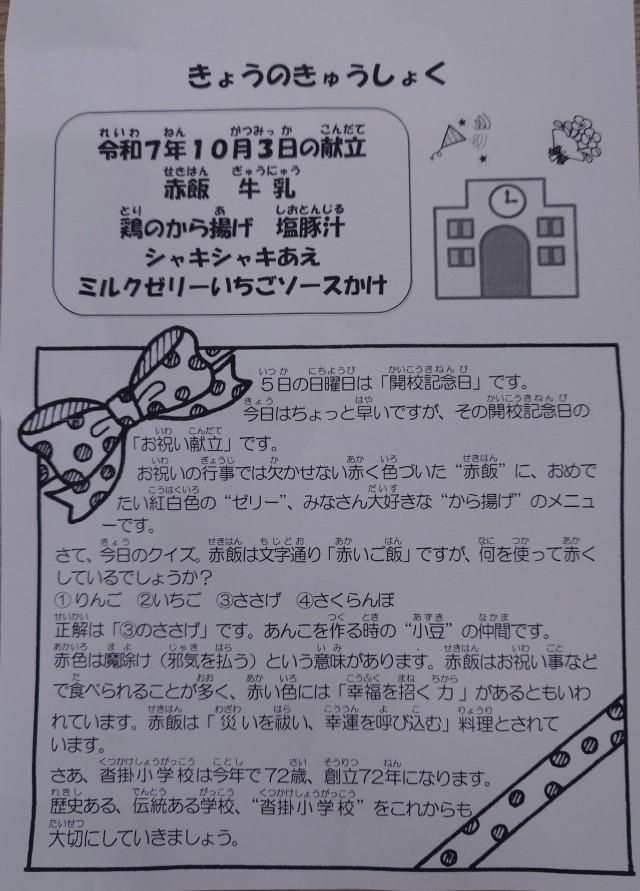 きょうのきゅうしょく
令和7年10月3日の献立
赤飯 牛乳
鶏のから揚げ 塩豚汁
シャキシャキあえ
ミルクゼリーいちごソースかけ
5日の日曜日は「開校記念日」です。
今日はちょっと早いですが、その開校記念日の
「お祝い献立」です。
お祝いの行事では欠かせない赤く色づいた“赤飯”に、おめで
たい紅白色の“ゼリー”、みなさん大好きな“から揚げ”のメニュ
ーです。
さて、今日のクイズ。赤飯は文字通り「赤いご飯」ですが、何を使って赤く
しているでしょうか？
①りんご ②いちご ③ささげ ④さくらんぼ
正解は「③のささげ」です。あんこを作る時の“小豆”の仲間です。
赤色は魔除け（邪気を払う）という意味があります。赤飯はお祝い事など
で食べられることが多く、赤い色には「幸福を招く力」があるともいわ
れています。赤飯は「災いを祓い、幸運を呼び込む」料理とされて
います。
さあ、沓掛小学校は今年で72歳、創立72年になります。
歴史ある、伝統ある学校、“沓掛小学校”をこれからも
大切にしていきましょう。